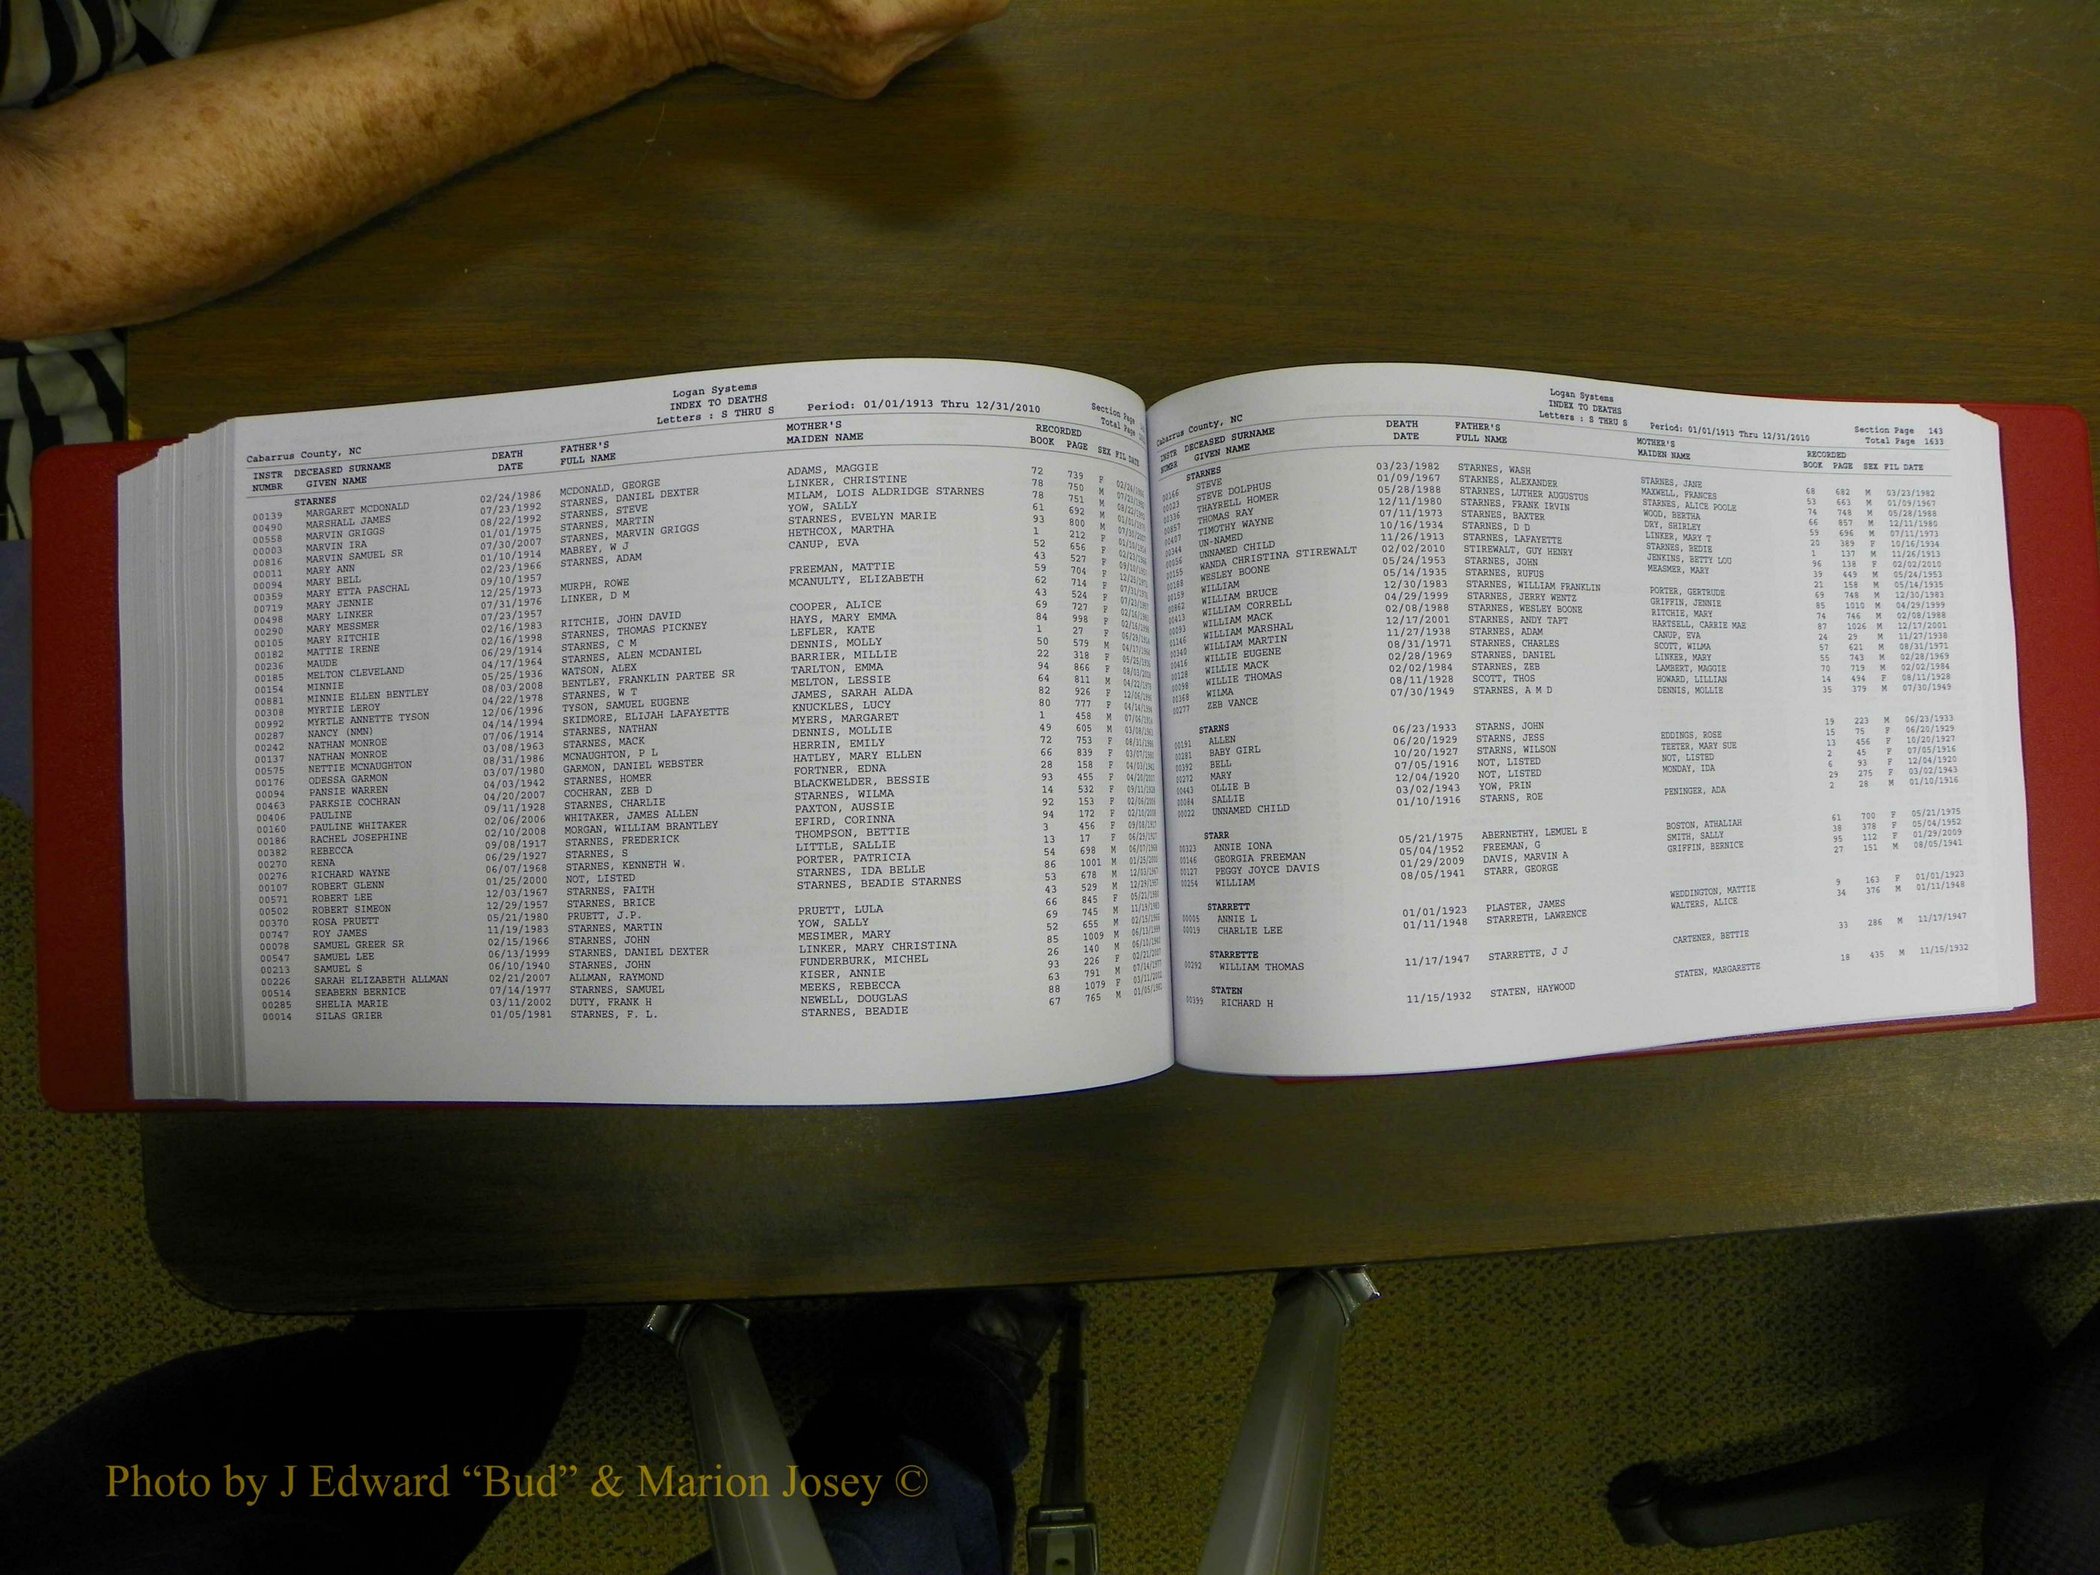 Logan Systems
INDEX TO DEATHS
Letters : S THRU S Period: 01/01/1913 Thru 12/31/2010
Section Page
Total Page
Cabarrus County, NC
INSTR DECEASED SURNAME DEATH FATHER'S MOTHER'S RECORDED
NUMBR GIVEN NAME DATE FULL NAME MAIDEN NAME BOOK PAGE SEX FIL DATE
STARNES
00139 MARGARET MCDONALD 02/24/1986 MCDONALD, GEORGE ADAMS, MAGGIE 72 739 F
00490 MARSHALL JAMES 07/23/1992 STARNES, DANIEL DEXTER LINKER, CHRISTINE 78 750 M
00558 MARVIN GRIGGS 08/22/1992 STARNES, STEVE MILAM, LOIS ALDRIDGE STARNES 78 751 M
00003 MARVIN IRA 01/01/1975 STARNES, MARTIN YOW, SALLY 61 692 M
00816 MARVIN SAMUEL SR 07/30/2007 STARNES, MARVIN GRIGGS STARNES, EVELYN MARIE 93 800 M
00011 MARY ANN 01/10/1914 MABREY, W J HETHCOX, MARTHA 1 212 F
00094 MARY BELL 02/23/1966 STARNES, ADAM CANUP, EVA 52 656 F
00359 MARY ETTA PASCHAL 09/10/1957 43 527 F
00719 MARY JENNIE 12/25/1973 MURPH, ROWE FREEMAN, MATTIE 59 704 F
00498 MARY LINKER 07/31/1976 LINKER, D M MCANULTY, ELIZABETH 62 714 F
00290 MARY MESSMER 07/23/1957 43 524 F
00105 MARY RITCHIE 02/16/1983 RITCHIE, JOHN DAVID COOPER, ALICE 69 727 F
00182 MATTIE IRENE 02/16/1998 STARNES, THOMAS PICKNEY HAYS, MARY EMMA 84 998 F
00236 MAUDE 06/29/1914 STARNES, C M LEFLER, KATE 1 27 F
00185 MELTON CLEVELAND 04/17/1964 STARNES, ALEN MCDANIEL DENNIS, MOLLY 50 579 M
00154 MINNIE 05/25/1936 WATSON, ALEX BARRIER, MILLIE 22 318 F
00881 MINNIE ELLEN BENTLEY 08/03/2008 BENTLEY, FRANKLIN PARTEE SR TARLTON, EMMA 94 866 F
00308 MYRTIE LEROY 04/22/1978 STARNES, W T MELTON, LESSIE 64 811 M
00992 MYRTLE ANNETTE TYSON 12/06/1996 TYSON, SAMUEL EUGENE JAMES, SARAH ALDA 82 926 F
00287 NANCY (NMN) 04/14/1994 SKIDMORE, ELIJAH LAFAYETTE KNUCKLES, LUCY 80 777 F
00242 NATHAN MONROE 07/06/1914 STARNES, NATHAN MYERS, MARGARET 1 458 M
00137 NATHAN MONROE 03/08/1963 STARNES, MACK DENNIS, MOLLIE 49 605 M
00575 NETTIE MCNAUGHTON 08/31/1986 MCNAUGHTON, P L HERRIN, EMILY 72 753 F
00176 ODESSA GARMON 03/07/1980 GARMON, DANIEL WEBSTER HATLEY, MARY ELLEN 66 839 F
00094 PANSIE WARREN 04/03/1942 STARNES, HOMER FORTNER, EDNA 28 158 F
00463 PARKSIE COCHRAN 04/20/2007 COCHRAN, ZEB D BLACKWELDER, BESSIE 93 455 F
00406 PAULINE 09/11/1928 STARNES, CHARLIE STARNES, WILMA 14 532 F
00160 PAULINE WHITAKER 02/06/2006 WHITAKER, JAMES ALLEN PAXTON, AUSSIE 92 153 F
00186 RACHEL JOSEPHINE 02/10/2008 MORGAN, WILLIAM BRANTLEY EFIRD, CORINNA 94 172 F
00382 REBECCA 09/08/1917 STARNES, FREDERICK THOMPSON, BETTIE 3 456 F
00270 RENA 06/29/1927 STARNES, S LITTLE, SALLIE 13 17 F
00276 RICHARD WAYNE 06/07/1968 STARNES, KENNETH W. PORTER, PATRICIA 54 698 M
00107 ROBERT GLENN 01/25/2000 NOT, LISTED STARNES, IDA BELLE 86 1001 M
00571 ROBERT LEE 12/03/1967 STARNES, FAITH STARNES, BEADIE STARNES 53 678 M
00502 ROBERT SIMEON 12/29/1957 STARNES, BRICE 43 529 M
00370 ROSA PRUETT 05/21/1980 PRUETT, J.P. PRUETT, LULA 66 845 F
00747 ROY JAMES 11/19/1983 STARNES, MARTIN YOW, SALLY 69 745 M
00078 SAMUEL GREER SR 02/15/1966 STARNES, JOHN MESIMER, MARY 52 655 M
00547 SAMUEL LEE 06/13/1999 STARNES, DANIEL DEXTER LINKER, MARY CHRISTINA 85 1009 M
00213 SAMUEL S 06/10/1940 STARNES, JOHN FUNDERBURK, MICHEL 26 140 M
00226 SARAH ELIZABETH ALLMAN 02/21/2007 ALLMAN, RAYMOND KISER, ANNIE 93 226 F
00514 SEABERN BERNICE 07/14/1977 STARNES, SAMUEL MEEKS, REBECCA 63 791 M
00285 SHELIA MARIE 03/11/2002 DUTY, FRANK H NEWELL, DOUGLAS 88 1079 F
00014 SILAS GRIER 01/05/1981 STARNES, F. L. STARNES, BEADIE 67 765 M
Logan Systems
INDEX TO DEATHS
Letters : S THRU S Period: 01/01/1913 Thru 12/31/2010
Section Page 143
Total Page 1633
Cabarrus County, NC
INSTR DECEASED SURNAME DEATH FATHER'S MOTHER'S RECORDED
NUMBR GIVEN NAME DATE FULL NAME MAIDEN NAME BOOK PAGE SEX FIL DATE
STARNES
00166 STEVE 03/23/1982 STARNES, WASH STARNES, JANE 68 682 M 03/23/1982
00023 STEVE DOLPHUS 01/09/1967 STARNES, ALEXANDER MAXWELL, FRANCES 53 663 M 01/09/1967
00336 THAYRELL HOMER 05/28/1988 STARNES, LUTHER AUGUSTUS STARNES, ALICE POOLE 74 748 M 05/28/1988
00857 THOMAS RAY 12/11/1980 STARNES, FRANK IRVIN WOOD, BERTHA 66 857 M 12/11/1980
00407 TIMOTHY WAYNE 07/11/1973 STARNES, BAXTER DRY, SHIRLEY 59 696 M 07/11/1973
00344 UN-NAMED 10/16/1934 STARNES, D D LINKER, MARY T 20 389 F 10/16/1934
00056 UNNAMED CHILD 11/26/1913 STARNES, LAFAYETTE STARNES, BEDIE 1 137 M 11/26/1913
00155 WANDA CHRISTINA STIREWALT 02/02/2010 STIREWALT, GUY HENRY JENKINS, BETTY LOU 96 138 F 02/02/2010
00188 WESLEY BOONE 05/24/1953 STARNES, JOHN MEASMER, MARY 39 449 M 05/24/1953
00159 WILLIAM 05/14/1935 STARNES, RUFUS 21 158 M 05/14/1935
00862 WILLIAM BRUCE 12/30/1983 STARNES, WILLIAM FRANKLIN PORTER, GERTRUDE 69 748 M 12/30/1983
00413 WILLIAM CORRELL 04/29/1999 STARNES, JERRY WENTZ GRIFFIN, JENNIE 85 1010 M 04/29/1999
00093 WILLIAM MACK 02/08/1988 STARNES, WESLEY BOONE RITCHIE, MARY 74 746 M 02/08/1988
01146 WILLIAM MARSHAL 12/17/2001 STARNES, ANDY TAFT HARTSELL, CARRIE MAE 87 1026 M 12/17/2001
00340 WILLIAM MARTIN 11/27/1938 STARNES, ADAM CANUP, EVA 24 29 M 11/27/1938
00416 WILLIE EUGENE 08/31/1971 STARNES, CHARLES SCOTT, WILMA 57 621 M 08/31/1971
00128 WILLIE MACK 02/28/1969 STARNES, DANIEL LINKER, MARY 55 743 M 02/28/1969
00098 WILLIE THOMAS 02/02/1984 STARNES, ZEB LAMBERT, MAGGIE 70 719 M 02/02/1984
00368 WILMA 08/11/1928 SCOTT, THOS HOWARD, LILLIAN 14 494 F 08/11/1928
00277 ZEB VANCE 07/30/1949 STARNES, A M D DENNIS, MOLLIE 35 379 M 07/30/1949
STARNS
00191 ALLEN 06/23/1933 STARNS, JOHN EDDINGS, ROSE 19 223 M 06/23/1933
00281 BABY GIRL 06/20/1929 STARNS, JESS TEETER, MARY SUE 15 75 F 06/20/1929
00392 BELL 10/20/1927 STARNS, WILSON NOT, LISTED 13 456 F 10/20/1927
00272 MARY 07/05/1916 NOT, LISTED MONDAY, IDA 2 45 F 07/05/1916
00443 OLLIE B 12/04/1920 NOT, LISTED 6 93 F 12/04/1920
00084 SALLIE 03/02/1943 YOW, PRIN PENINGER, ADA 29 275 F 03/02/1943
00022 UNNAMED CHILD 01/10/1916 STARNS, ROE 2 28 M 01/10/1916
STARR
00323 ANNIE IONA 05/21/1975 ABERNETHY, LEMUEL E BOSTON, ATHALIAH 61 700 F 05/21/1975
00146 GEORGIA FREEMAN 05/04/1952 FREEMAN, G SMITH, SALLY 38 378 F 05/04/1952
00127 PEGGY JOYCE DAVIS 01/29/2009 DAVIS, MARVIN A GRIFFIN, BERNICE 95 112 F 01/29/2009
00254 WILLIAM 08/05/1941 STARR, GEORGE 27 151 M 08/05/1941
STARRETT
00005 ANNIE L 01/01/1923 PLASTER, JAMES WEDDINGTON, MATTIE 9 163 F 01/01/1923
00019 CHARLIE LEE 01/11/1948 STARRETH, LAWRENCE WALTERS, ALICE 34 376 M 01/11/1948
STARRETTE
00292 WILLIAM THOMAS 11/17/1947 STARRETTE, J J CARTENER, BETTIE 33 286 M 11/17/1947
STATEN
00399 RICHARD H 11/15/1932 STATEN, HAYWOOD STATEN, MARGARETTE 18 435 M 11/15/1932
Photo by J Edward “Bud” & Marion Josey ©